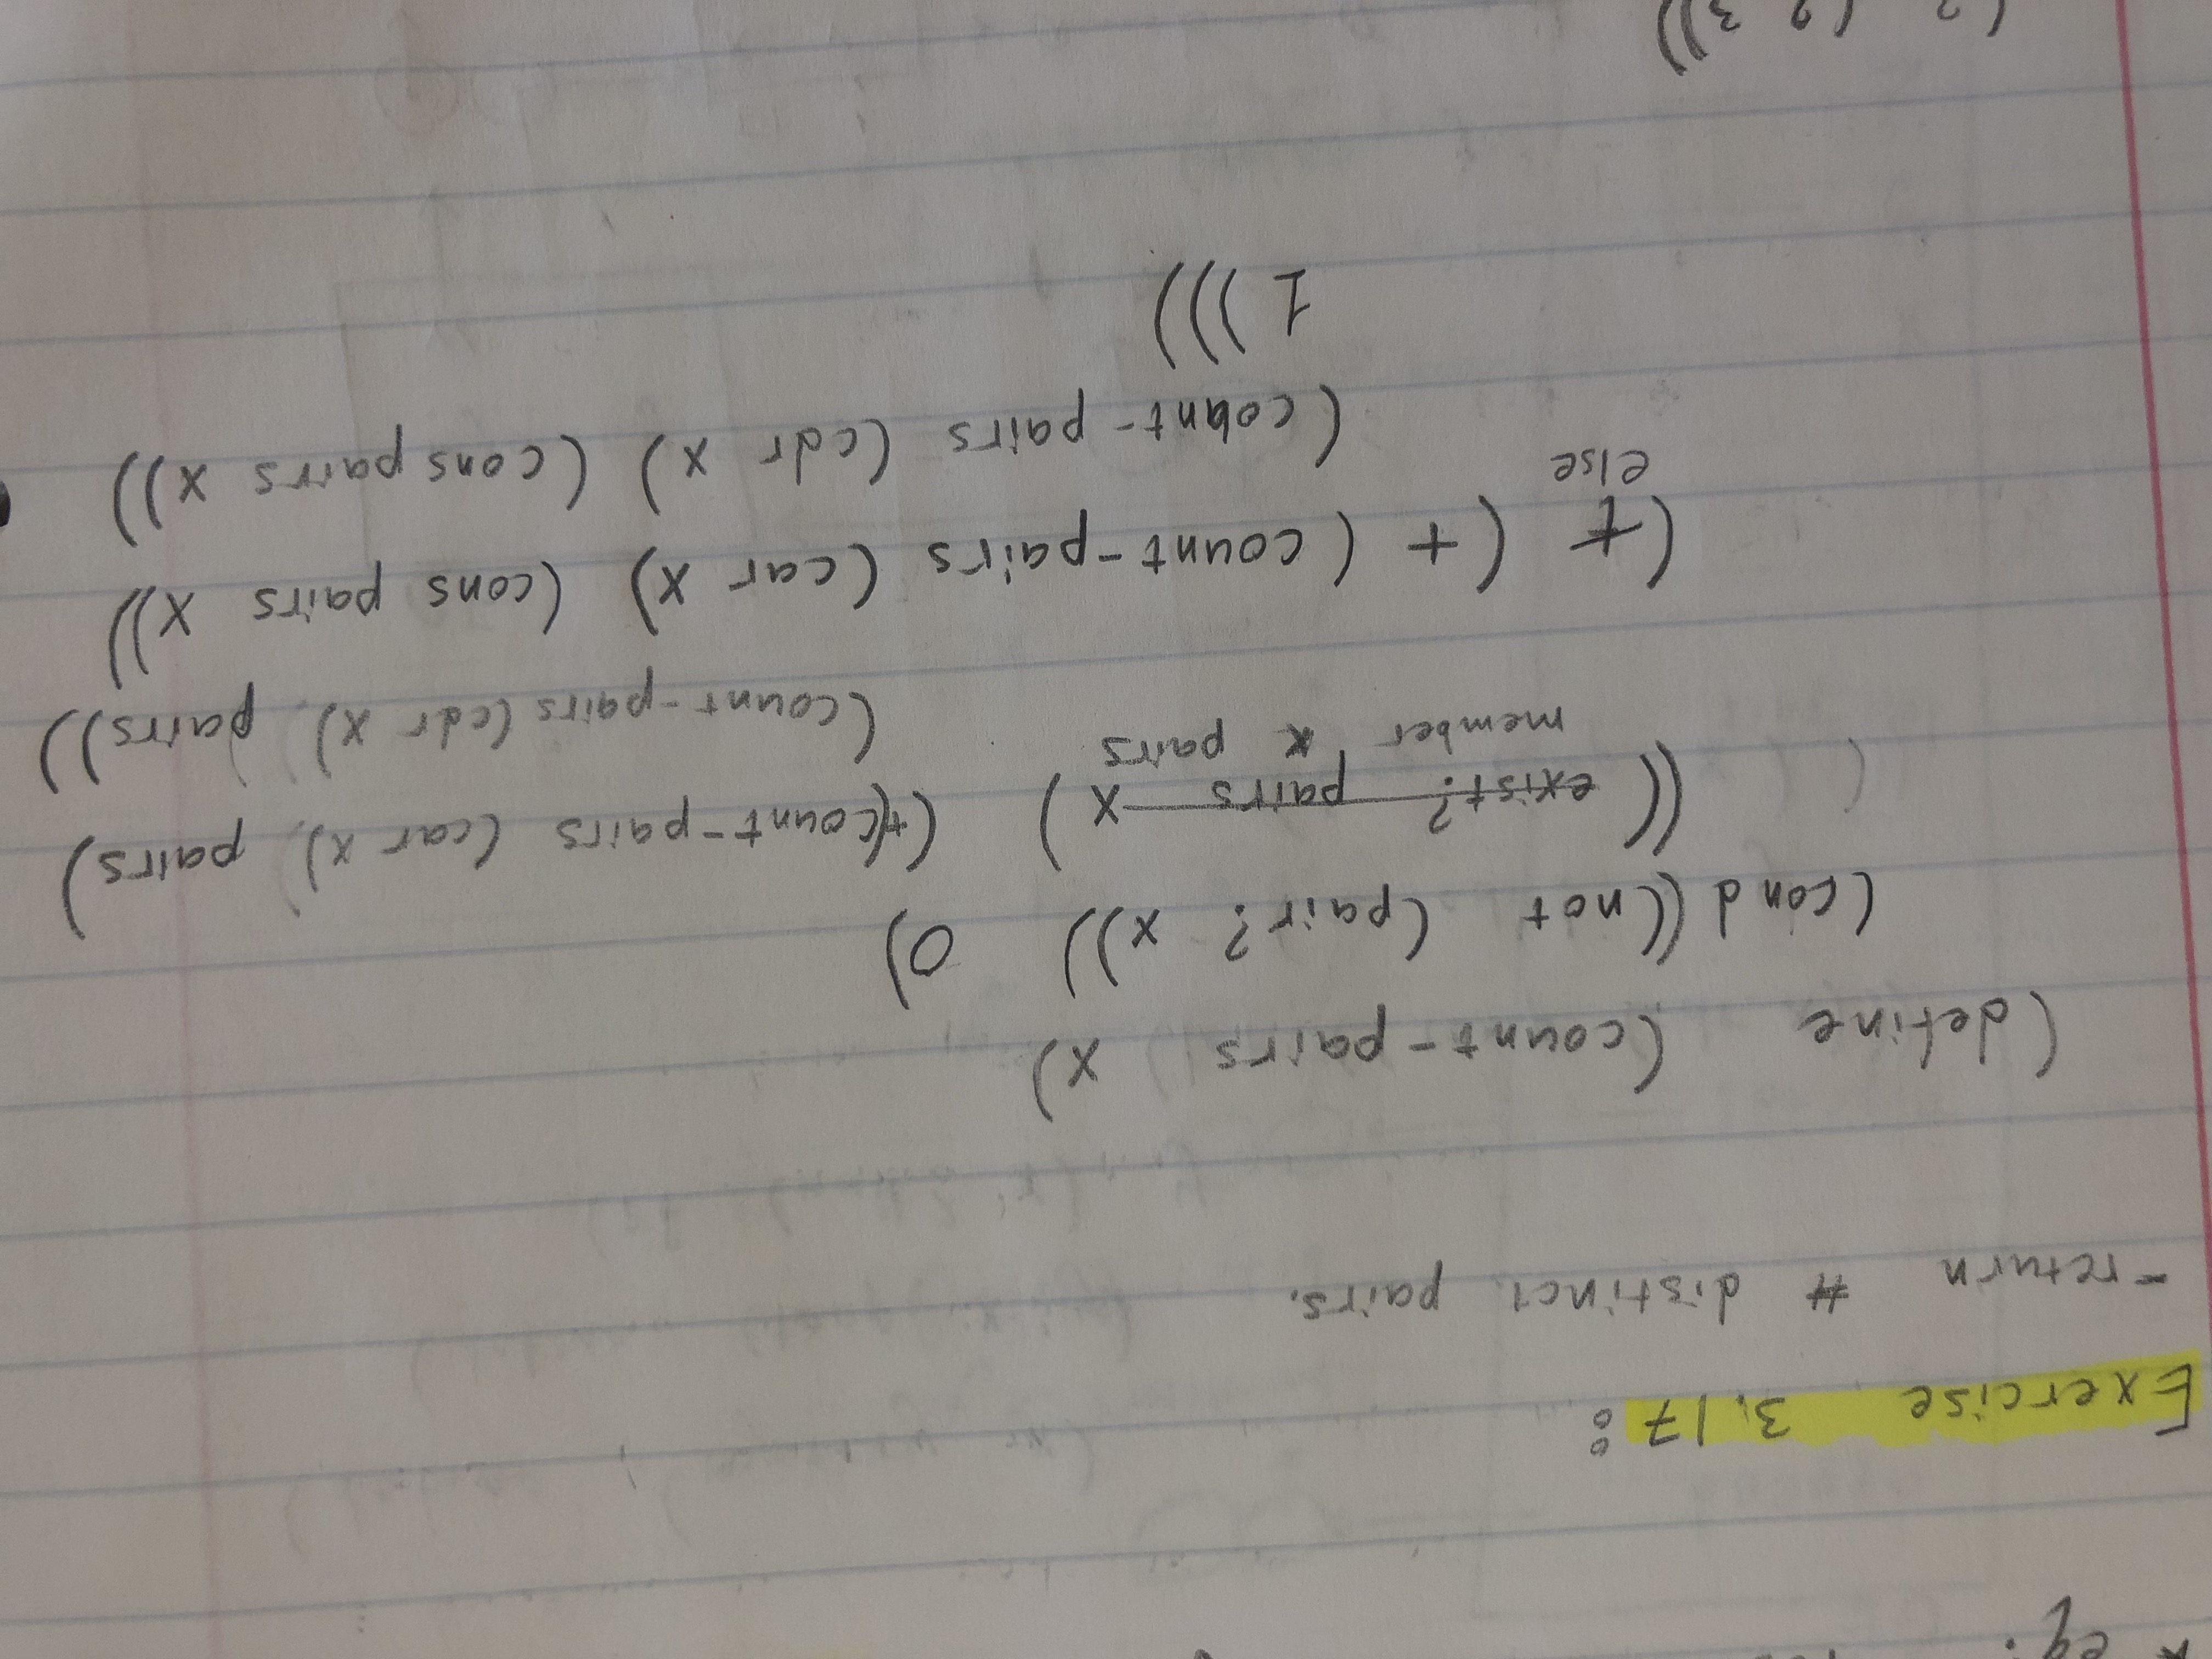 Exercise 3.17:
- return # distinct pairs.
(define (count-pairs x)
(cond ((not (pair? x)) 0)
((exist? pairs x) (+(count-pairs (car x) pairs)
member x pairs (count-pairs (cdr x) pairs))
(+ (+ (count-pairs (car x) (cons pairs x))
else (count-pairs (cdr x) (cons pairs x))
1)))